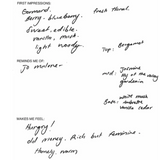 FIRST IMPRESSIONS:
Gourmand.
Berry - blueberry.
Sweet, edible.
vanilla, musk.
light woody
fresh floral.
Top: Bergamot
REMINDS ME OF:
Jo malone -
mid: Jasmine
lily of the valley
gardenia
Base: white musk
Ambrette
vanilla cedar
MAKES ME FEEL:
Hungry!
old money. Rich but feminine.
Homely, warm